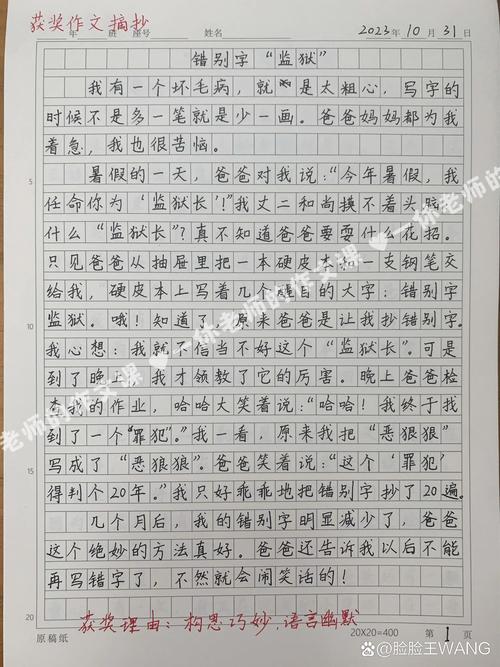 获奖作文摘抄
年 班 座号 姓名 2023年10月31日
错别字“监狱”
我有一个坏毛病，就是太粗心，写字的
时候不是多一笔就是少一画。爸爸妈妈都为我
着急，我也很苦恼。
暑假的一天，爸爸对我说：“今年暑假，我
任命你为‘监狱长’！”我丈二和尚摸不着头脑，
什么“监狱长”？真不知道爸爸要耍什么花招。
只见爸爸从抽屉里把一本硬皮本和一支钢笔交
给我，硬皮本上写着几个醒目的大字：错别字
监狱。哦！知道了，原来爸爸是让我抄错别字。
我心想：我就不信当不好这个“监狱长”。可是
到了晚上，我才领教了它的厉害。晚上爸爸检
查我的作业，哈哈大笑着说：“哈哈！我终于找
到了一个‘罪犯’。”我一看，原来我把“恶狠狠”
写成了“恶狼狼”。爸爸笑着说：“这个‘罪犯’
得判个20年。”我只好乖乖地把错别字抄了20遍。
几个月后，我的错别字明显减少了，爸爸
这个绝妙的方法真好。爸爸还告诉我以后不能
再写错字了，不然就会闹笑话的！
获奖理由：构思巧妙，语言幽默
原稿纸 20X20=400 第1页
5
10
15
20
老师的作文课
一你老师的作文课
百家号/脸脸王WANG